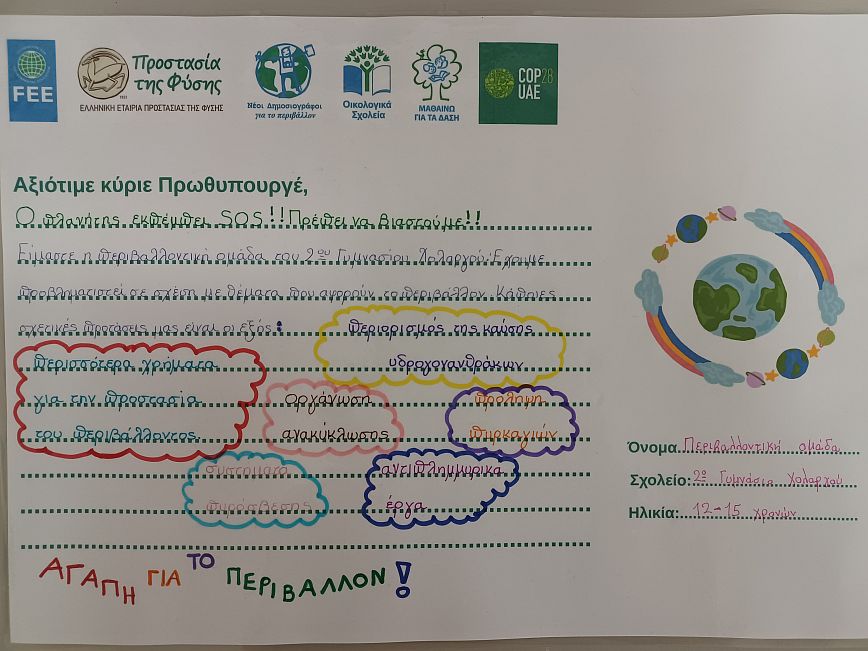 FEE
Προστασία
της Φύσης
ΕΛΛΗΝΙΚΗ ΕΤΑΙΡΙΑ ΠΡΟΣΤΑΣΙΑΣ ΤΗΣ ΦΥΣΗΣ
Νέοι Δημοσιογράφοι
για το περιβάλλον
Οικολογικά
Σχολεία
ΜΑΘΑΙΝΩ
ΓΙΑ ΤΑ ΔΑΣΗ
COP28
UAE
Αξιότιμε κύριε Πρωθυπουργέ,
Ο πλανήτης εκπέμπει SOS!! Πρέπει να βιαστούμε!!
Είμαστε η περιβαλλοντική ομάδα του 2ου Γυμνασίου Χολαργού. Έχουμε
προβληματιστεί σε σχέση με θέματα που αφορούν το περιβάλλον. Κάποιες
σχετικές προτάσεις μας είναι οι εξής:
περιορισμός της καύσης
υδρογονανθράκων
περισσότερα χρήματα
για την προστασία
του περιβάλλοντος
οργάνωση
ανακύκλωσης
πρόληψη
πυρκαγιών
συστήματα
πυρόσβεσης
αντιπλημμυρικά
έργα
ΑΓΑΠΗ ΓΙΑ ΤΟ ΠΕΡΙΒΑΛΛΟΝ!
Όνομα Περιβαλλοντική ομάδα
Σχολείο: 2ο Γυμνάσιο Χολαργού
Ηλικία: 12-15 χρονών